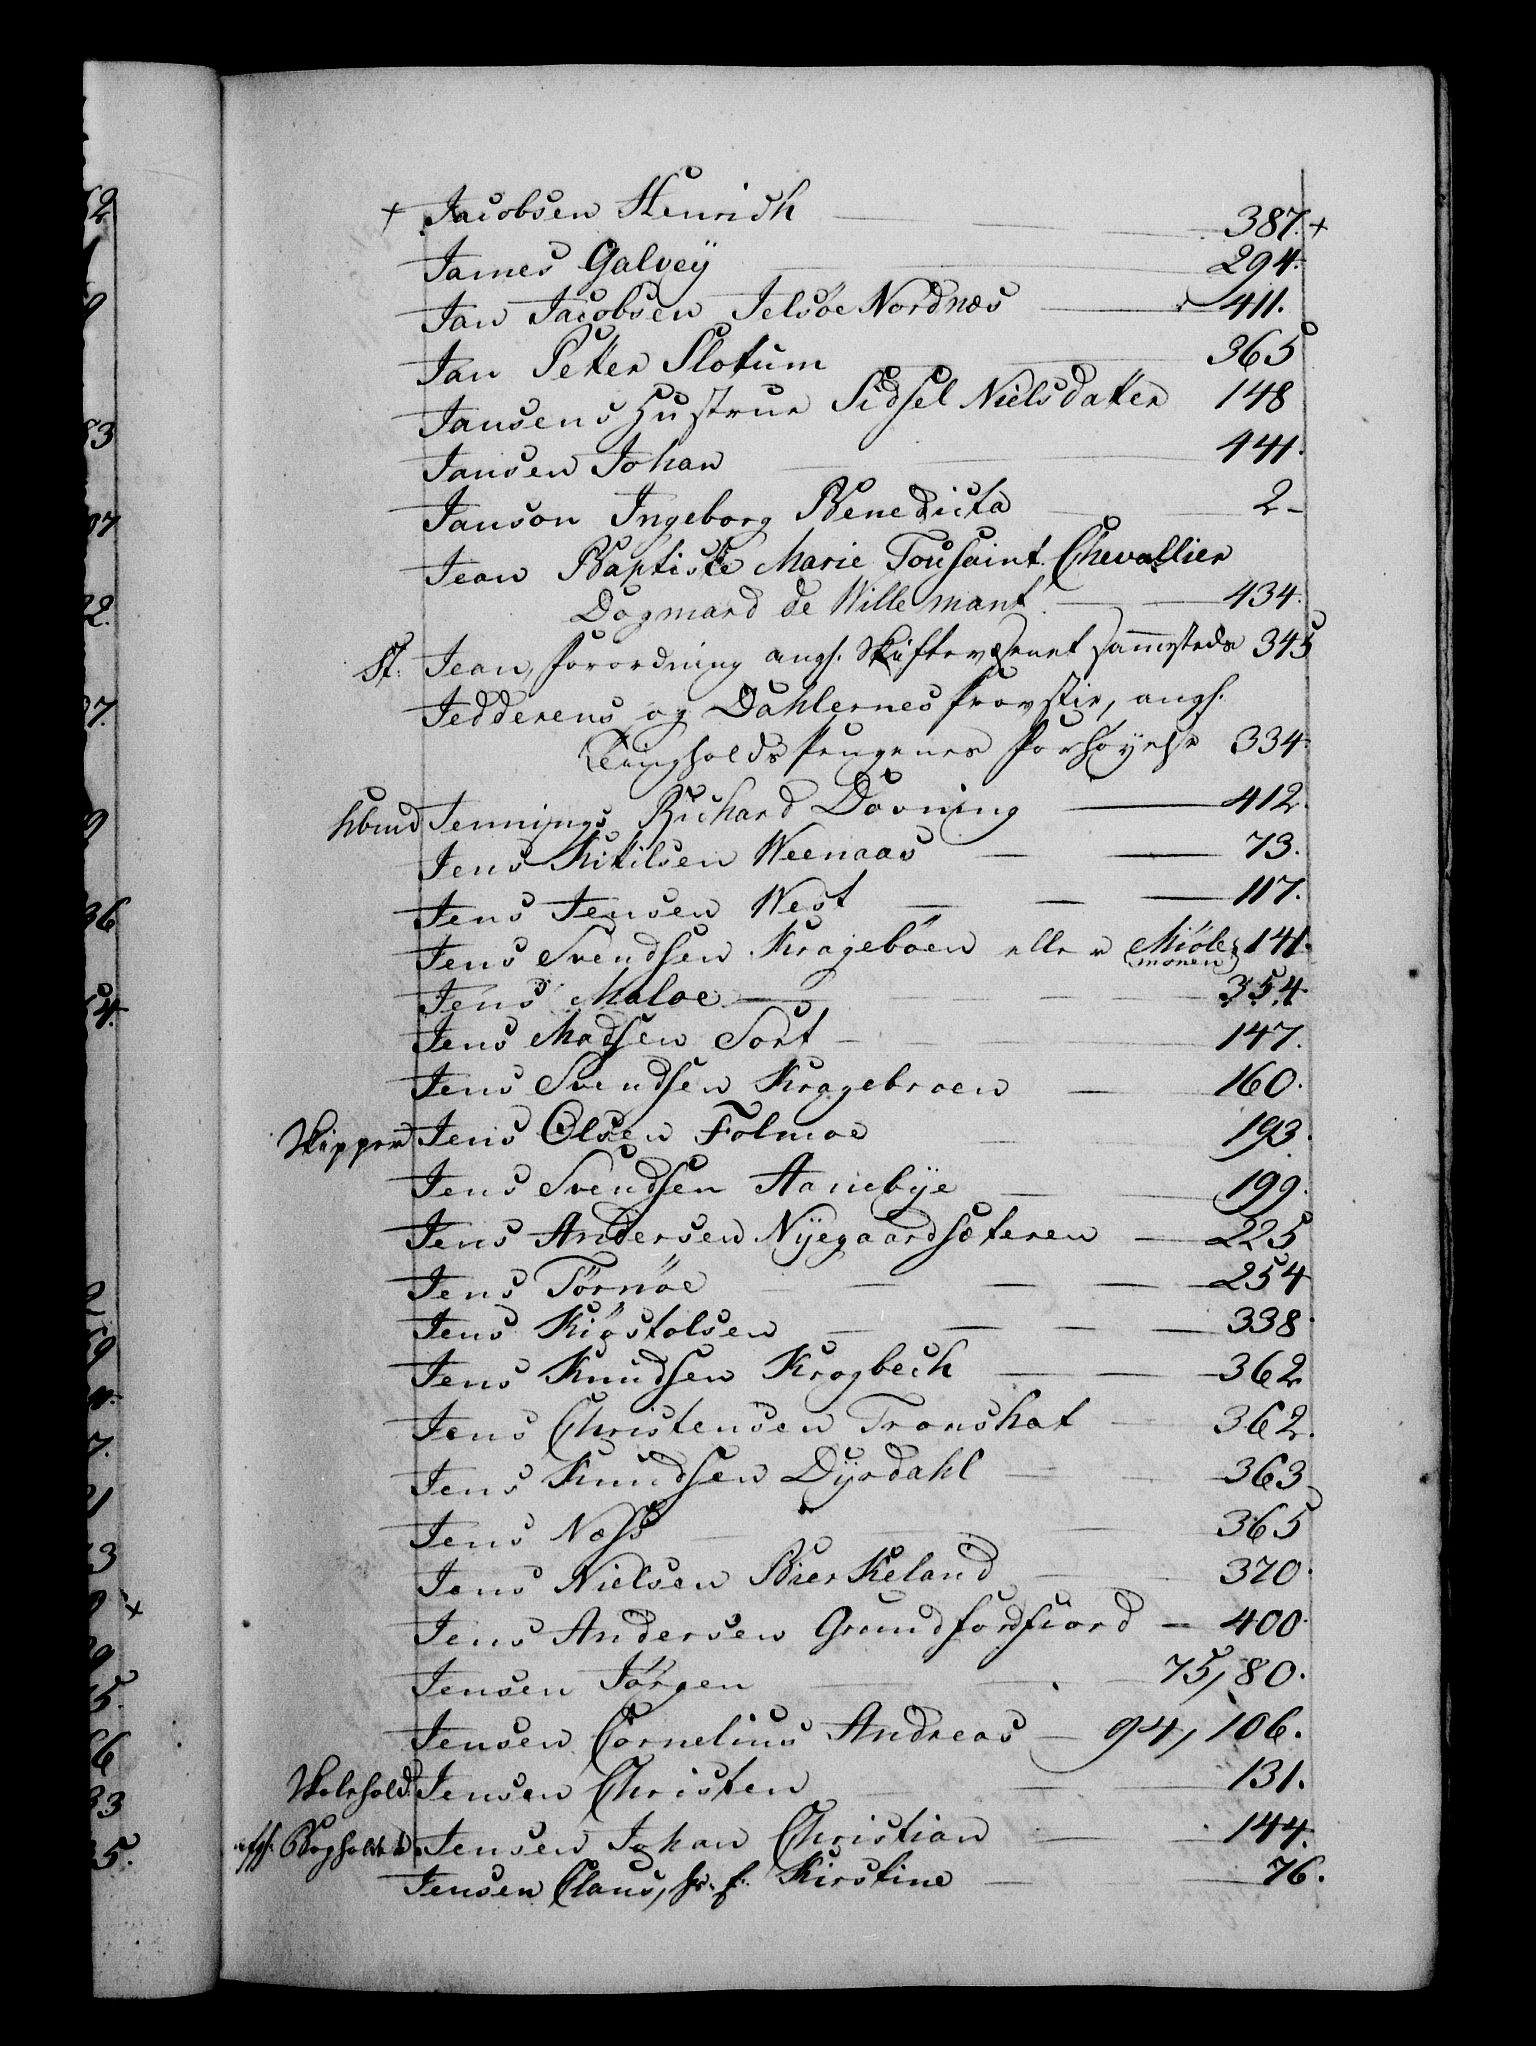 + Jacobsen Henrich 387. +
James Galveÿ 294.
Jan Jacobsen Jelsöe Nordnæs 411.
Jan Peter Slotum 365
Jansens Hustrue Sidsel Nielsdatter 148
Jansen Johan 441.
Janson Ingeborg Benedicta 2
Jean Baptiste Marie Tousaint Chevallier
Dogmand de Willemant 434.
St. Jean, Forordning angl. Skiftevæsenet sammesteds 345
Jedderens og Dahlernes Provstie, angl.
Tingholds Pengenes Forhöyelse 334.
Hbmd Jennings Richard Dovning 412.
Jens Kitilsen Weenaas 73.
Jens Jensen West 117.
Jens Svendsen Krageböen eller Miöle 141.
monen
Jens Maloe 354.
Jens Madsen Sort 147.
Jens Svendsen Kragebroen 160.
Skipper Jens Olsen Folmoe 193.
Jens Svendsen Aanebÿe 199.
Jens Andersen Nÿegaardsæteren 225
Jens Törnöe 254
Jens Kiöstolsen 338
Jens Knudsen Krogbech 362
Jens Christensen Transhat 362.
Jens Knudsen Dÿrdahl 363
Jens Næss 365
Jens Nielsen Bierkeland 370
Jens Andersen Grundfordfiord 400
Jensen Jörgen 75, 80.
Jensen Cornelius Andreas 94, 106.
Skolehold. Jensen Christen 131.
Bogholder Jensen Johan Christian 144.
Jensen Claus, hr. f. Kirstine 76.
52
83
97
22.
7.
9
36
54.
9
59
7.
21
3
+
99
5.
56
33
5.